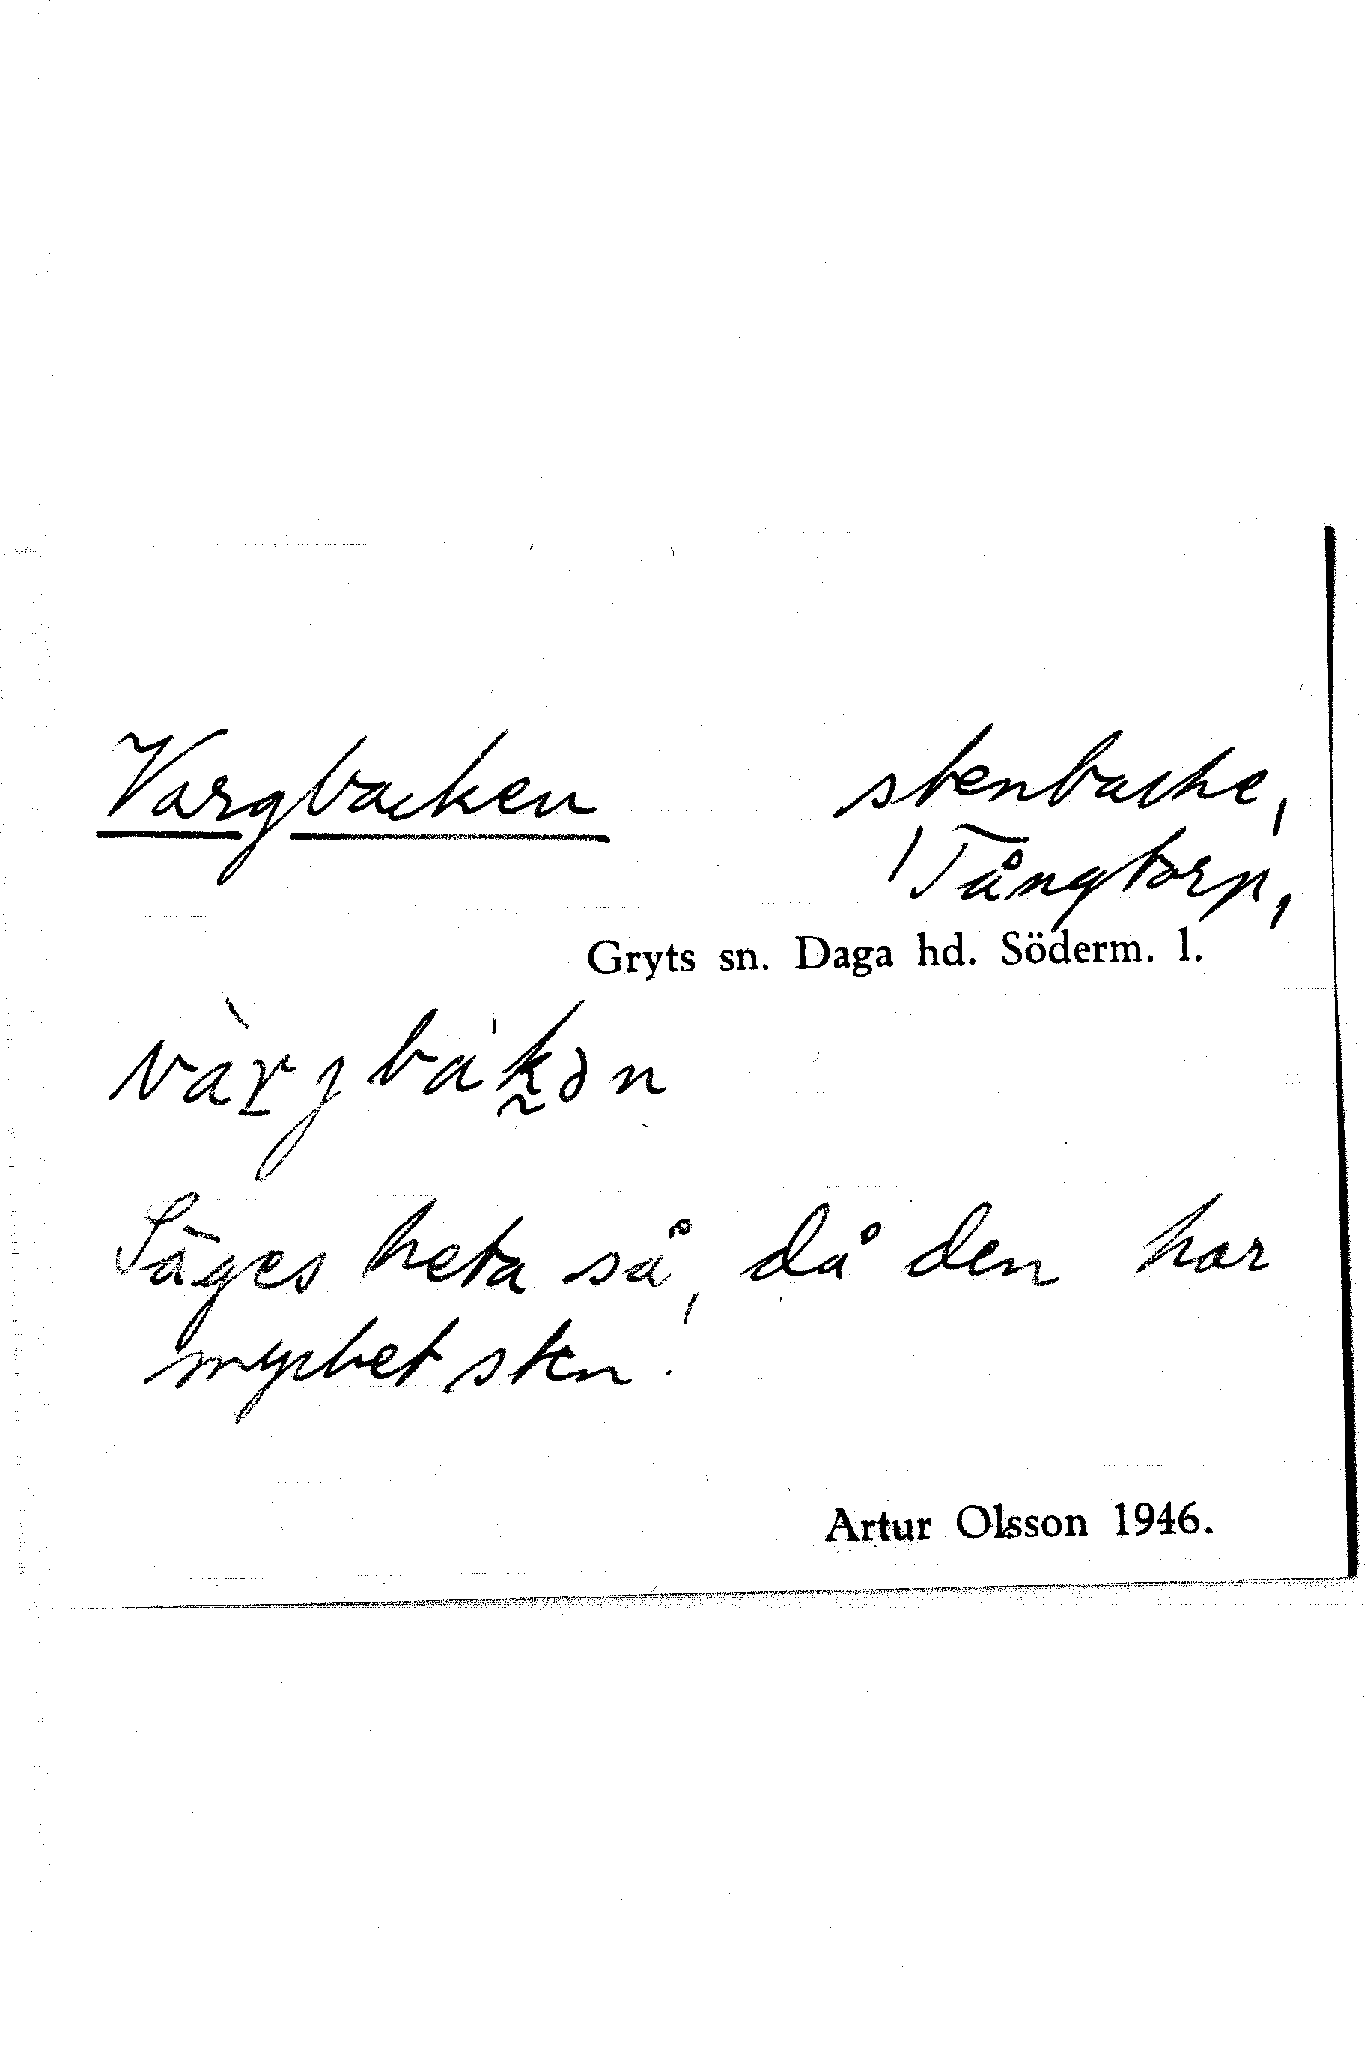 Vargbacken stenbacke,
/Tångtorp,
Gryts sn. Daga hd. Söderm. l.
vàrjbákən
Säges heta så, då den har
mycket sten.
Artur Olsson 1946.